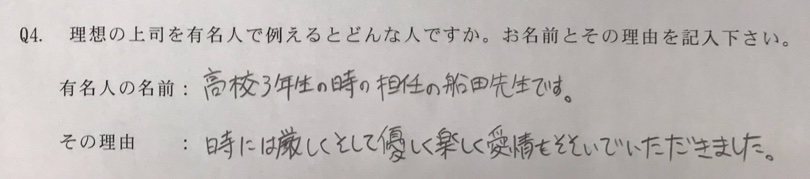 Q4. 理想の上司を有名人で例えるとどんな人ですか。お名前とその理由を記入下さい。
有名人の名前：高校3年生の時の担任の船田先生です。
その理由　　：時には厳しくそして優しく楽しく愛情をそそいでいただきました。